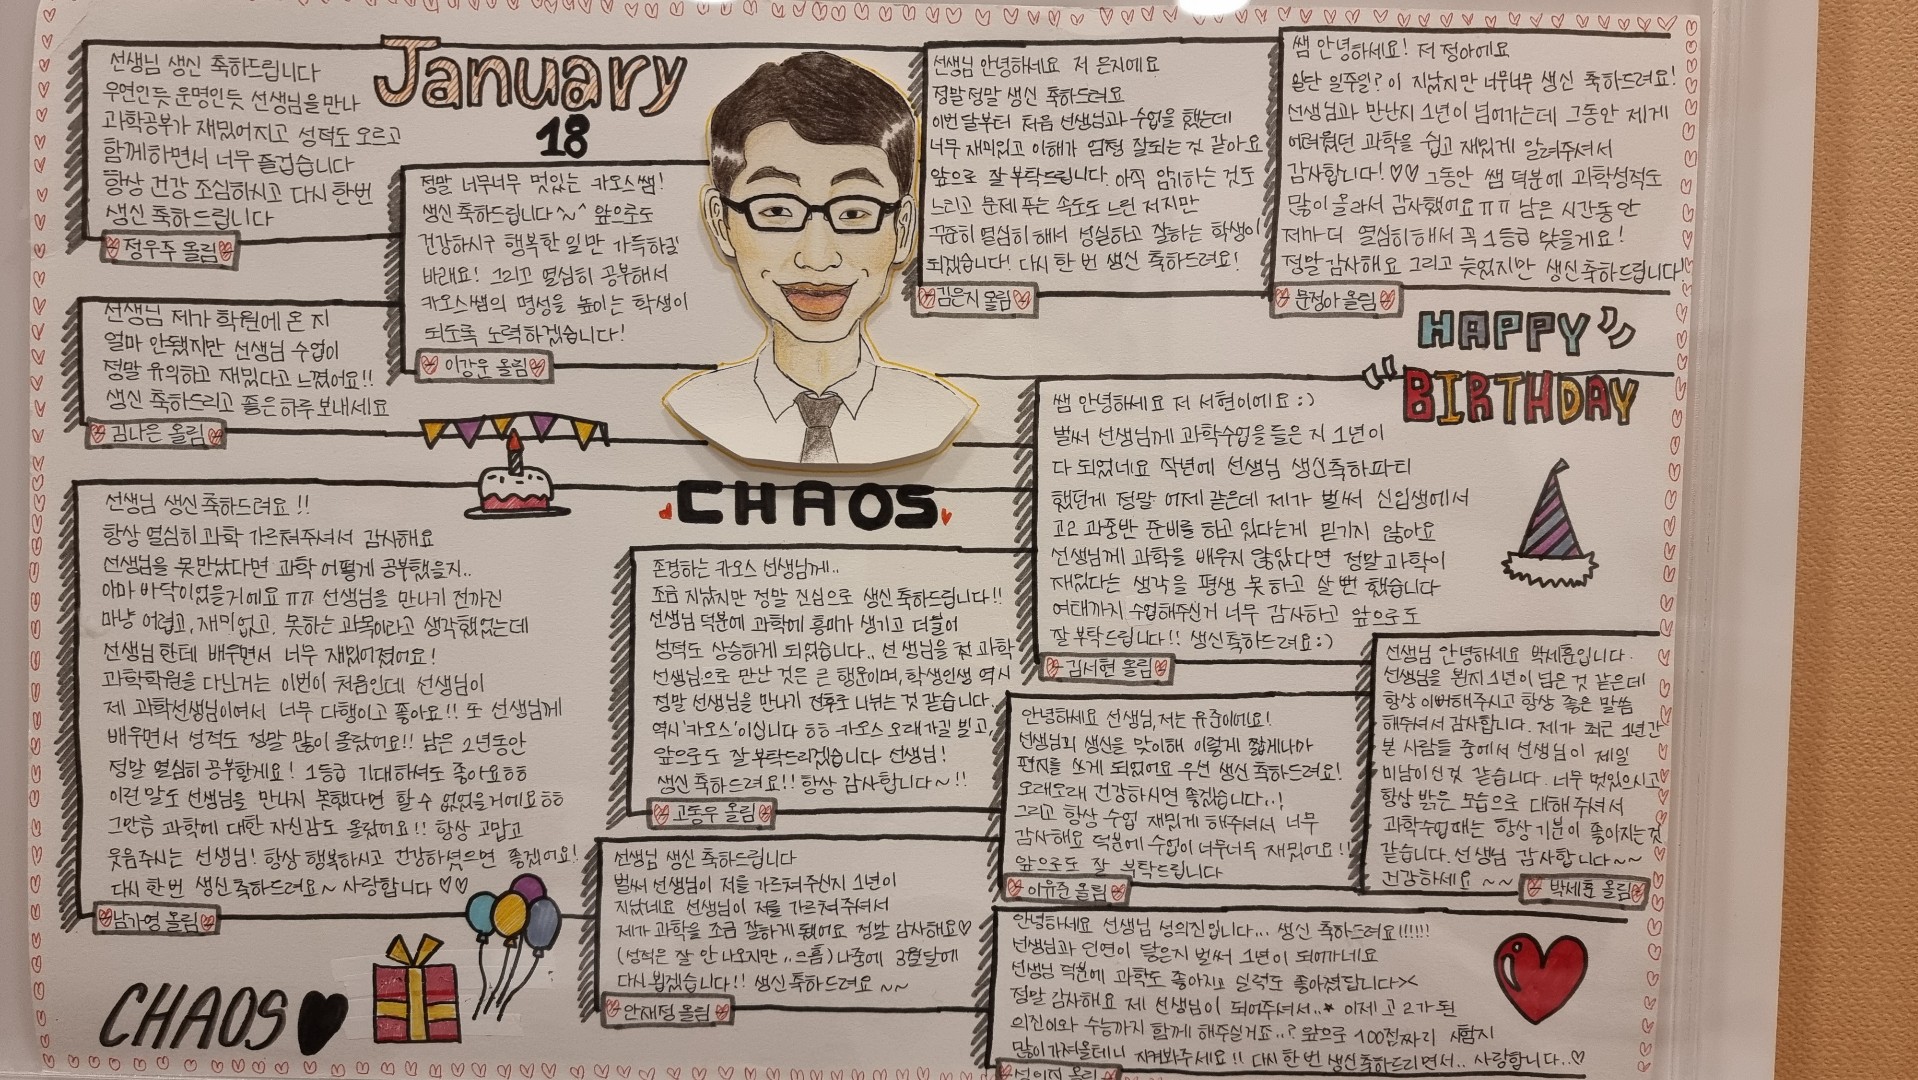 선생님 생신 축하드립니다
우연인듯 운명인듯 선생님을 만나
과학공부가 재밌어지고 성적도 오르고
함께하면서 너무 즐겁습니다
항상 건강 조심하시고 다시 한번
생신 축하드립니다
정우주 올림
January
18
정말 너무너무 멋있는 카오스쌤!
생신 축하드립니다~^ 앞으로도
건강하시구 행복한 일만 가득하길
바래요! 그리고 열심히 공부해서
카오스쌤의 명성을 높이는 학생이
되도록 노력하겠습니다!
이강운 올림
선생님 안녕하세요 저 은지에요
정말정말 생신 축하드려요
이번달부터 처음 선생님과 수업을 했는데
너무 재미있고 이해가 엄청 잘되는 것 같아요
앞으로 잘 부탁드립니다. 아직 암기하는 것도
느리고 문제 푸는 속도도 느린 저지만
꾸준히 열심히 해서 성실하고 잘하는 학생이
되겠습니다! 다시 한 번 생신 축하드려요!
김은지 올림
쌤 안녕하세요! 저 정아에요
일단 일주일? 이 지났지만 너무너무 생신 축하드려요!
선생님과 만난지 1년이 넘어가는데 그동안 제게
어려웠던 과학을 쉽고 재밌게 알려주셔서
감사합니다!♡♡ 그동안 쌤 덕분에 과학성적도
많이 올라서 감사했어요ㅠㅠ 남은 시간동안
제가 더 열심히해서 꼭 1등급 맞을게요!
정말 감사해요 그리고 늦었지만 생신축하드립니다!
문정아 올림
선생님 제가 학원에 온 지
얼마 안됐지만 선생님 수업이
정말 유익하고 재밌다고 느꼈어요!!
생신 축하드리고 좋은하루 보내세요
김나은 올림
HAPPY
BIRTHDAY
CHAOS
쌤 안녕하세요 저 서현이에요:)
벌써 선생님께 과학수업을 들은 지 1년이
다 되었네요 작년에 선생님 생신축하파티
했던게 정말 어제 같은데 제가 벌써 신입생에서
고2 과중반 준비를 하고 있다는게 믿기지 않아요
선생님께 과학을 배우지 않았다면 정말 과학이
재밌다는 생각을 평생 못 하고 살 뻔 했습니다
여태까지 수업해주신거 너무 감사하고 앞으로도
잘 부탁드립니다!! 생신축하드려요:)
김서현 올림
선생님 생신 축하드려요!!
항상 열심히 과학 가르쳐주셔서 감사해요
선생님을 못만났다면 과학 어떻게 공부했을지..
아마 바닥이었을거예요ㅠㅠ 선생님을 만나기 전까진
마냥 어렵고, 재미없고, 못하는 과목이라고 생각했었는데
선생님한테 배우면서 너무 재밌어졌어요!
과학학원을 다닌거는 이번이 처음인데 선생님이
제 과학선생님이어서 너무 다행이고 좋아요!! 또 선생님께
배우면서 성적도 정말 많이 올랐어요!! 남은 2년동안
정말 열심히 공부할게요! 1등급 기대하셔도 좋아요ㅎㅎ
이런 말도 선생님을 만나지 못했다면 할 수 없었을거에요ㅎㅎ
그만큼 과학에 대한 자신감도 올랐어요!! 항상 고맙고
웃음주시는 선생님! 항상 행복하시고 건강하셨으면 좋겠어요!
다시 한번 생신 축하드려요~ 사랑합니다♡♡
남가영 올림
존경하는 카오스 선생님께..
조금 지났지만 정말 진심으로 생신 축하드립니다!!
선생님 덕분에 과학에 흥미가 생기고 더불어
성적도 상승하게 되었습니다.. 선생님을 전 과학
선생님으로 만난 것은 큰 행운이며, 학생인생 역시
정말 선생님을 만나기 전후로 나뉘는 것 같습니다.
역시 '카오스'이십니다ㅎㅎ 카오스 오래가길 빌고,
앞으로도 잘 부탁드리겠습니다 선생님!
생신 축하드려요!! 항상 감사합니다~!!
고동우 올림
선생님 안녕하세요 박세훈입니다.
선생님을 뵌지 1년이 넘은 것 같은데
항상 이뻐해주시고 항상 좋은 말씀
해주셔서 감사합니다. 제가 최근 1년간
본 사람들 중에서 선생님이 제일
미남이신것 같습니다. 너무 멋있으시고
항상 밝은 모습으로 대해주셔서
과학수업때는 항상 기분이 좋아지는것
같습니다. 선생님 감사합니다~~
건강하세요~~
박세훈 올림
안녕하세요 선생님, 저는 유준이에요!
선생님의 생신을 맞이해 이렇게 짧게나마
편지를 쓰게 되었어요 우선 생신 축하드려요!
오래오래 건강하시면 좋겠습니다..!
그리고 항상 수업 재밌게 해주셔서 너무
감사해요 덕분에 수업이 너무너무 재밌어요!!
앞으로도 잘 부탁드립니다
이유준 올림
선생님 생신 축하드립니다
벌써 선생님이 저를 가르쳐주신지 1년이
지났네요 선생님이 저를 가르쳐주셔서
제가 과학을 조금 잘하게 됐어요 정말 감사해요♡
(성적은 잘 안 나오지만..크흠) 나중에 3월달에
다시 뵙겠습니다!! 생신 축하드려요~~
안재정 올림
안녕하세요 선생님 성의진입니다... 생신 축하드려요!!!!!!
선생님과 인연이 닿은지 벌써 1년이 되어가네요
선생님 덕분에 과학도 좋아지고 실력도 좋아졌답니다><
정말 감사해요 제 선생님이 되어주셔서..* 이제 고2가 된
의진이와 수능까지 함께 해주실거죠..? 앞으로 100점짜리 시험지
많이 가져올테니 지켜봐주세요!! 다시 한 번 생신축하드리면서.. 사랑합니다..♡
성의진 올림
CHAOS